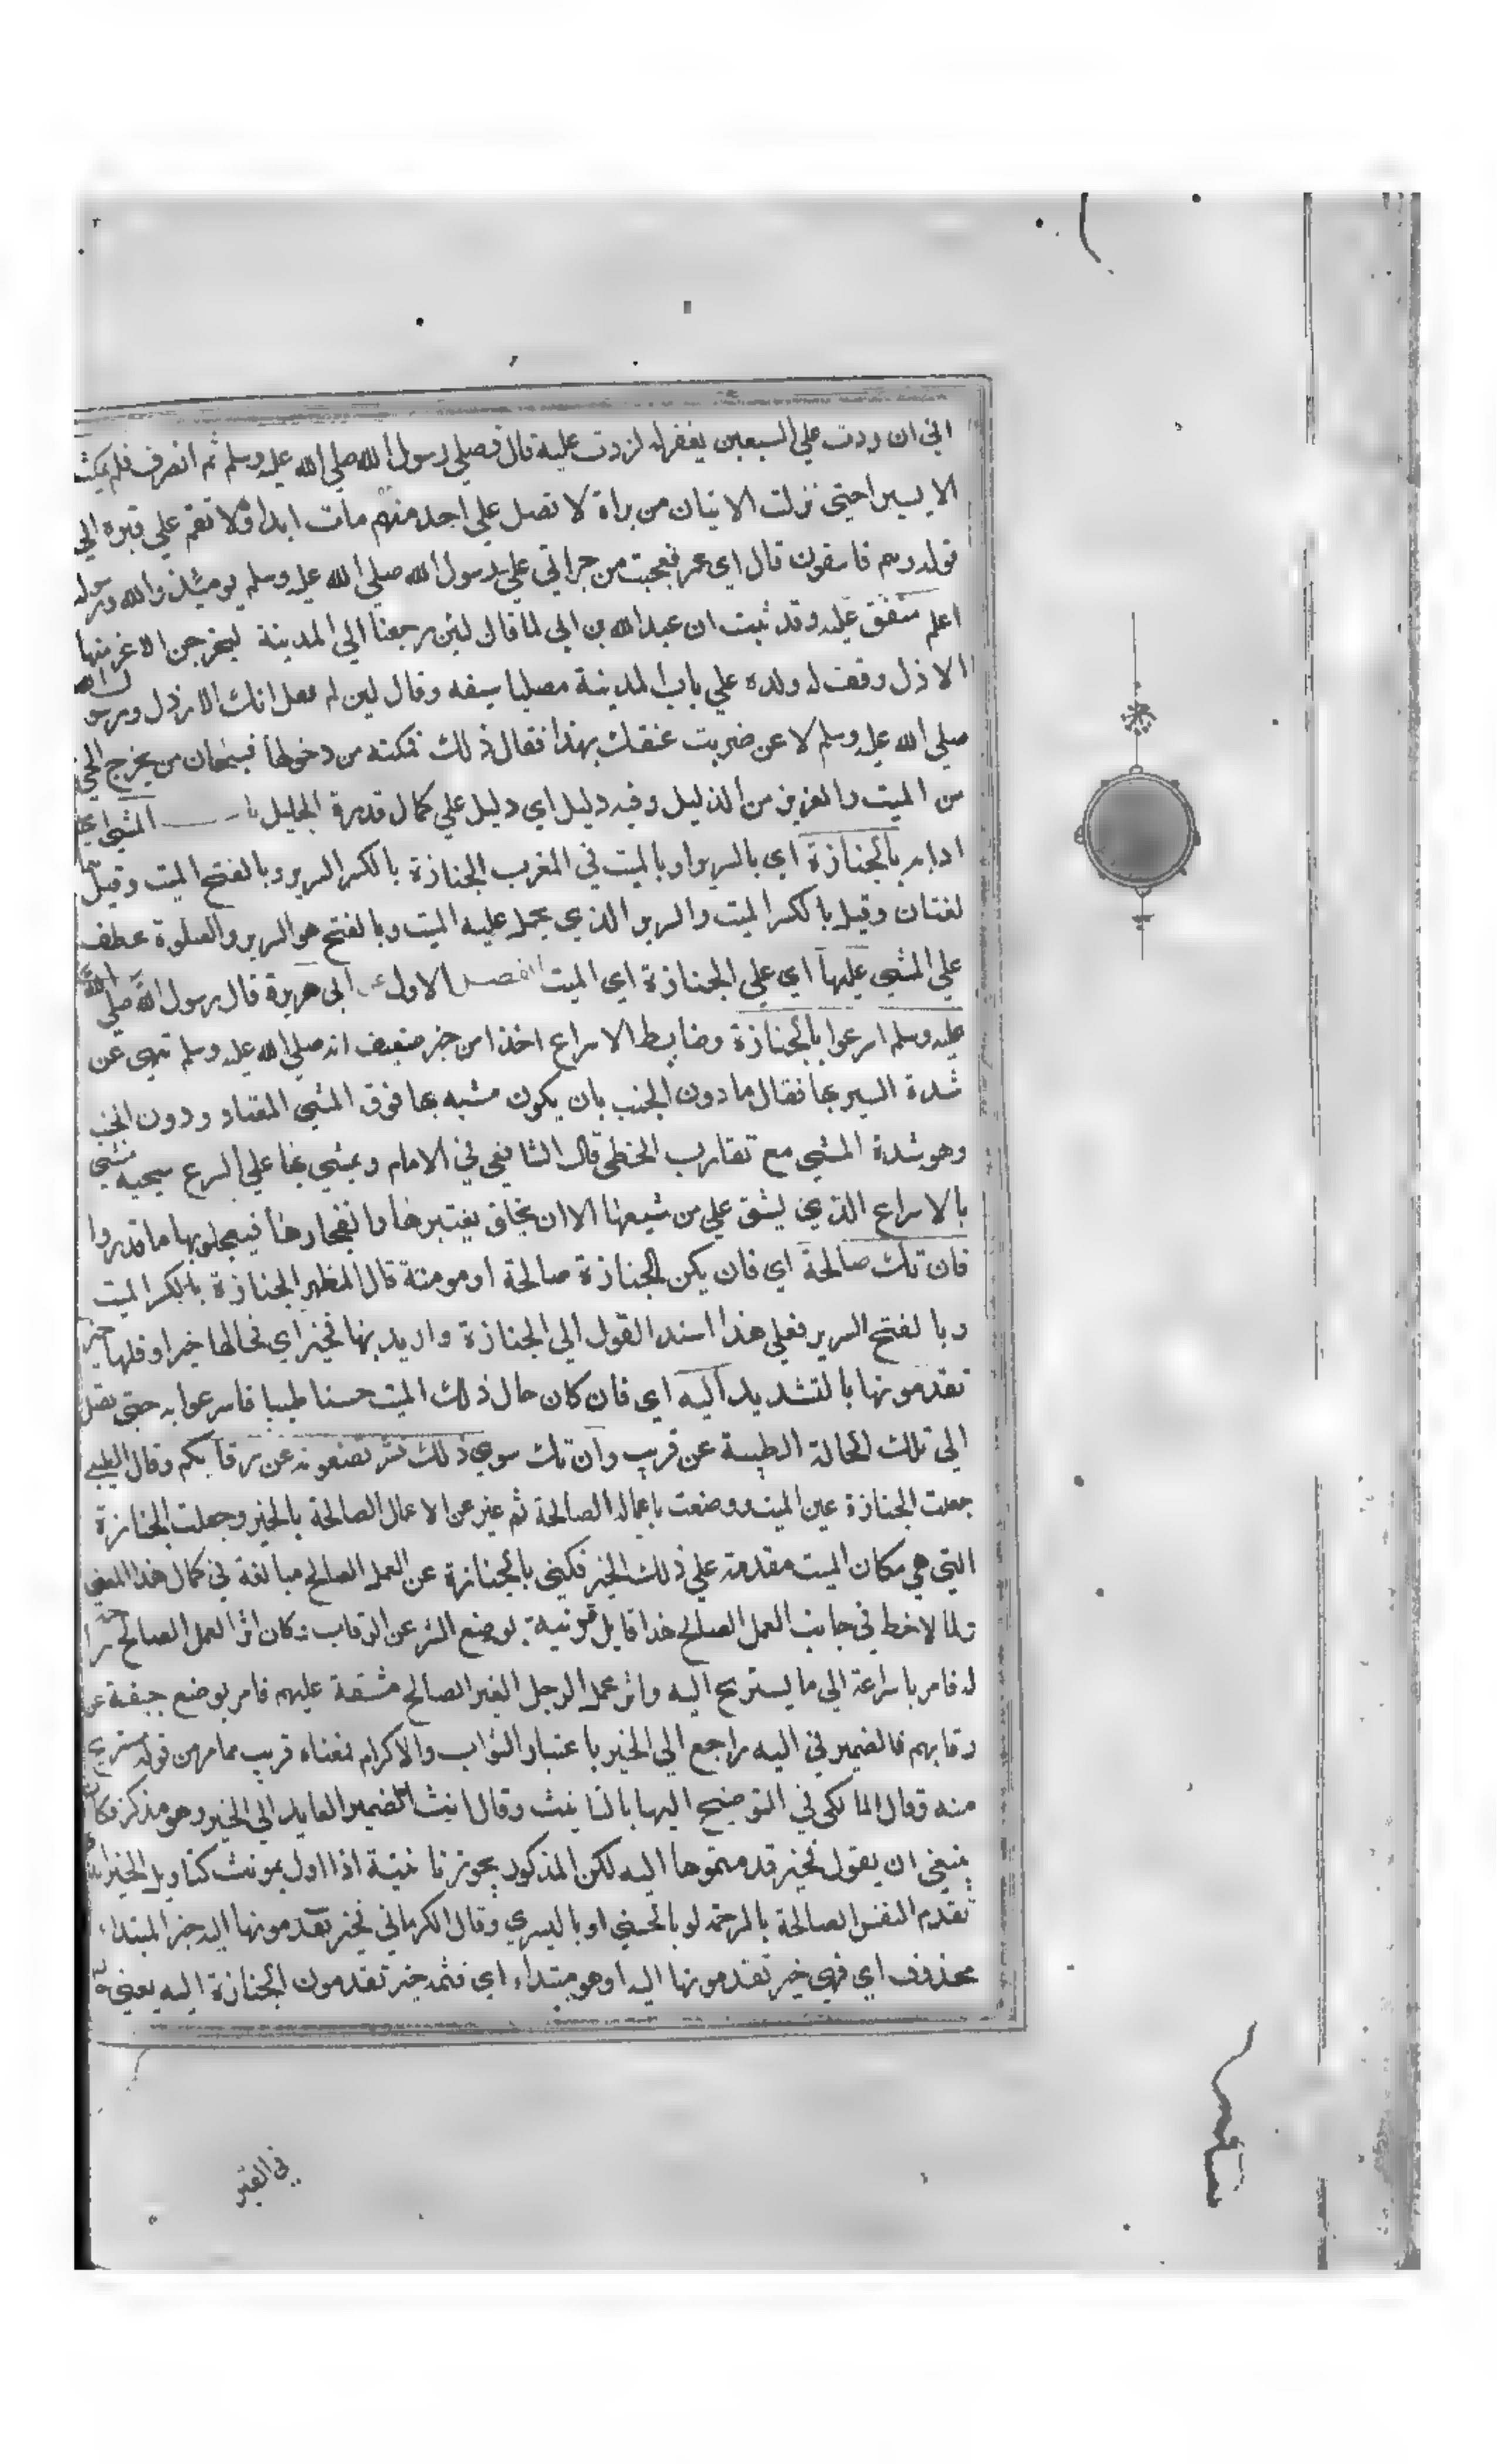 اني ان زدت علي السبعين يغفر له لزدت عليه قال فصلي رسول الله صلي الله عليه وسلم ثم انصرف فلم يمكث
الا يسيرا حتي نزلت الايتان من براة لا تصل علي احد منهم مات ابدا ولا تقم علي قبره الي
قوله وهم فاسقون قال اي عمر فعجبت من جراتي علي رسول الله صلي الله عليه وسلم يومئذ والله ورسوله
اعلم متفق عليه وقد ثبت ان عبدالله بن ابي لما قال لئن رجعنا الي المدينة ليخرجن الاعز منها
الاذل وقف له ولده علي باب المدينة مصلتا سيفه وقال لين لم تقل انك الاذل ورسول الله
صلي الله عليه وسلم الاعز ضربت عنقك بهذا فقال ذلك فمكنه من دخولها فسبحان من يخرج الحي
من الميت والعزيز من الذليل وفيه دليل اي دليل علي كمال قدرة الجليل باب المشي اي
ادابه بالجنازة اي بالسرير او بالميت في المغرب الجنازة بالكسر السرير وبالفتح الميت وقيل هما
لغتان وقيل بالكسر الميت والسرير الذي يحمل عليه الميت وبالفتح هو السرير والصلوة عطف
علي المشي عليها اي علي الجنازة اي الميت الفصل الاول عن ابي هريرة قال رسول الله صلي الله
عليه وسلم اسرعوا بالجنازة وضابط الاسراع اخذا من خبر ضعيف انه صلي الله عليه وسلم نهي عن
شدة السير بها فقال ما دون الخبب بان يكون مشيه بها فوق المشي المعتاد ودون الخبب
وهو شدة المشي مع تقارب الخطي قال الشافعي في الامام ويمشي بها علي اسرع سجية مشي
بالاسراع الذي يشق علي من شيعها الا ان يخاف تغيرها وانفجارها فيعجلو بها ما قدروا
فان تك صالحة اي فان يكن الجنازة صالحة او مومنة قال المظهر الجنازة بالكسر الميت
وبالفتح السرير فعلي هذا اسند القول الي الجنازة واريد بها فخير اي فحالها خير او فلها خير
تقدمونها بالتشديد اليه اي فان كان حال ذلك الميت حسنا طيبا فاسرعوا به حتي يصل
الي تلك الحالة الطيبة عن قريب وان تك سوي ذلك فشر تضعونه عن رقابكم وقال الطيبي
جعلت الجنازة عين الميت ووصفت باعماله الصالحة ثم عبر عن الاعمال الصالحة بالخير وجعلت الجنازة
التي هي مكان الميت مقدمة علي ذلك الخير فكني بالجنازة عن العمل الصالح مبالغة في كمال هذا المعني
ولما لاحظ في جانب العمل الصالح هذا قابل قرنيه بوضع الشر عن الرقاب وكان اثر العمل الصالح
له فامر باسراعه الي ما يستريح اليه واثر عمل الرجل الغير الصالح مشقة عليهم فامر بوضع جيفة عن
رقابهم فالضمير في اليه راجع الي الخير باعتبار الثواب والاكرام فمعناه قريب مما مر من قوله مستريح
منه وقال المالكي في التوضيح اليها بالتانيث وقال انث الضمير العايد الي الخير وهو مذكر وكان
ينبغي ان يقول فخير قدمتموها اليه لكن المذكور يجوز تانيثه اذا اول بمونث كتاويل الخير الذي
تقدم النفس الصالحة بالرحمة او بالحسني او باليسري وقال الكرماني فخير تقدمونها اليه خبر المبتداء
محذوف اي فهي خير تقدمونها اليه او هو مبتداء اي فثمه خير تقدمون الجنازة اليه يعني
في القبر